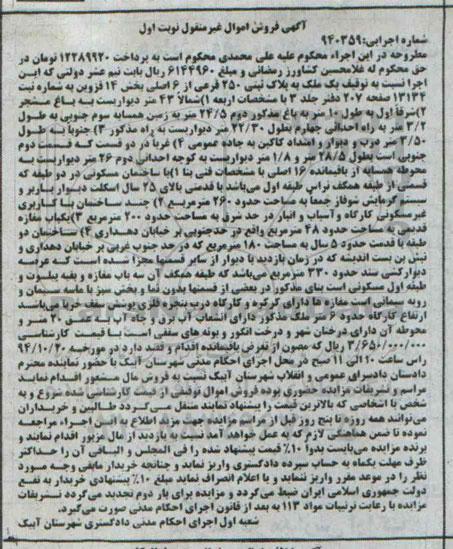 آگهی فروش اموال غیرمنقول نوبت اول
شماره اجرایی:۹۴۰۳۵۹
مطروحه در این اجراء محکوم علیه علی محمدی محکوم است به پرداخت ۱۲۲۸۹۹۲۰ تومان در
حق محکوم له غلامحسین کشاورز رمضانی و مبلغ ۶۱۴۴۹۶۰ ریال بابت نیم عشر دولتی که این
اجرا نسبت به توقیف یک ملک به پلاک ثبتی ۲۵۰ فرعی از ۶ اصلی بخش ۱۴ قزوین به شماره ثبت
۱۳۱۳۴ صفحه ۲۰۷ دفتر جلد ۳ با مشخصات اربعه ۱)شمالاً ۴۳ متر دیواریست به باغ مشجر
۲)شرقاً اول به طول ۱۰ متر به باغ مذکور دوم ۲۴/۵ متر به زمین همسایه سوم جنوبی به طول
۳/۲ متر به راه احداثی چهارم بطول ۲۲/۳۰ متر دیواریست به راه مذکور ۳) جنوباً به طول
۷/۵۰ متر درب و دیوار و امتداد کاکین به جاده عمومی ۴) غرباً در دو قسمت که قسمت دوم
جنوبی است بطول ۲۸/۵ متر و ۱/۸ متر دیواریست به کوچه احداثی دوم ۲۶ متر دیواریست به
محوطه همسایه از باقیمانده ۱۶ اصلی با مشخصات فنی بنا ۱)با ساختمان مسکونی در دو طبقه که
قسمتی از طبقه همکف تراس طبقه اول می‌باشد با قدمتی بالای ۲۵ سال اسکلت دیوار باربر و
سیستم گرمایش شوفاژ جمعاً به مساحت حدود ۲۶۰ مترمربع ۲) چند ساختمان با کاربری
غیرمسکونی کارگاه و آسیاب و انبار در حد شرق به مساحت حدود ۲۰۰ مترمربع ۳)یکباب مغازه
قدیمی به مساحت حدود ۴۸ مترمربع واقع در حدجنوبی بر خیابان دهداری ۴) ساختمان دو
طبقه با قدمت حدود ۵ سال به مساحت ۱۸۰ مترمربع که در حد جنوب غربی بر خیابان دهداری و
نبش بن بست اندیشه که در زمان بازدید با دیوار از سایر قسمتها مجزا شده است که عرصه
دیوارکشی سند حدود ۳۳۰ مترمربع می‌باشد که طبقه همکف آن سه باب مغازه و بقیه پیلوت و
طبقه اول مسکونی است بنای مذکور در بعضی از قسمتها بدون نما و بخش سبز با ماسه سیمان و
رویه سیمانی است مغازه ها دارای کرکره و کارگاه درب پنجره فلزی پوشش سقف خرپا می‌باشد
ارتفاع کارگاه حدود ۶ متر ملک مذکور دارای انشعاب آب برق و گاز متر و
محوطه آن دارای درختان شهر و درخت انگور و بوته های سقفی است با قیمت کارشناسی
۳/۶۵۰/۰۰۰/۰۰۰ ریال که مصون از تعرض باقیمانده اقدام و قصد دارد در مورخه ۹۴/۱۰/۲۰
راس ساعت ۱۰ الی ۱۱ صبح در محل اجرای احکام مدنی شهرستان آبیک با حضور نماینده محترم
دادستان دادسرای عمومی و انقلاب شهرستان آبیک نسبت به فروش مال مشعور اقدام نماید
مراسم و تشریفات مزایده حضوری بوده فروش اموال توقیفی از قیمت کارشناسی شده شروع و به
شخص یا اشخاصی که بالاترین قیمت را پیشنهاد نمایند منتقل می‌گردد طالبین و خریداران
می‌توانند همه روزه تا پنج روز قبل از مراسم مزایده جهت مزید اطلاع به این اجراء مراجعه
نموده تا ضمن هماهنگی لازم که به عمل خواهد آمد نسبت به بازدید از مال مزبور اقدام نمایند و
برنده مزایده می‌بایست بدواً ۱۰٪ قیمت پیشنهاد شده را فی المجلس و الباقی آن را حداکثر
ظرف مهلت یکماه به حساب سپرده دادگستری واریز نماید و چنانچه خریدار مابقی وجه مورد
نظر را در موعد مقرر واریز ننماید و یا اعلام انصراف نماید مبلغ ۱۰٪ پیشنهادی خریدار به نفع
دولت جمهوری اسلامی ایران ضبط می‌گردد و مزایده برای بار دوم تجدید می‌گردد تشریفات
مزایده با رعایت ترتیبات مواد ۱۱۳ به بعد از قانون اجرای احکام مدنی صورت می‌گیرد.
شعبه اول اجرای احکام مدنی دادگستری شهرستان آبیک